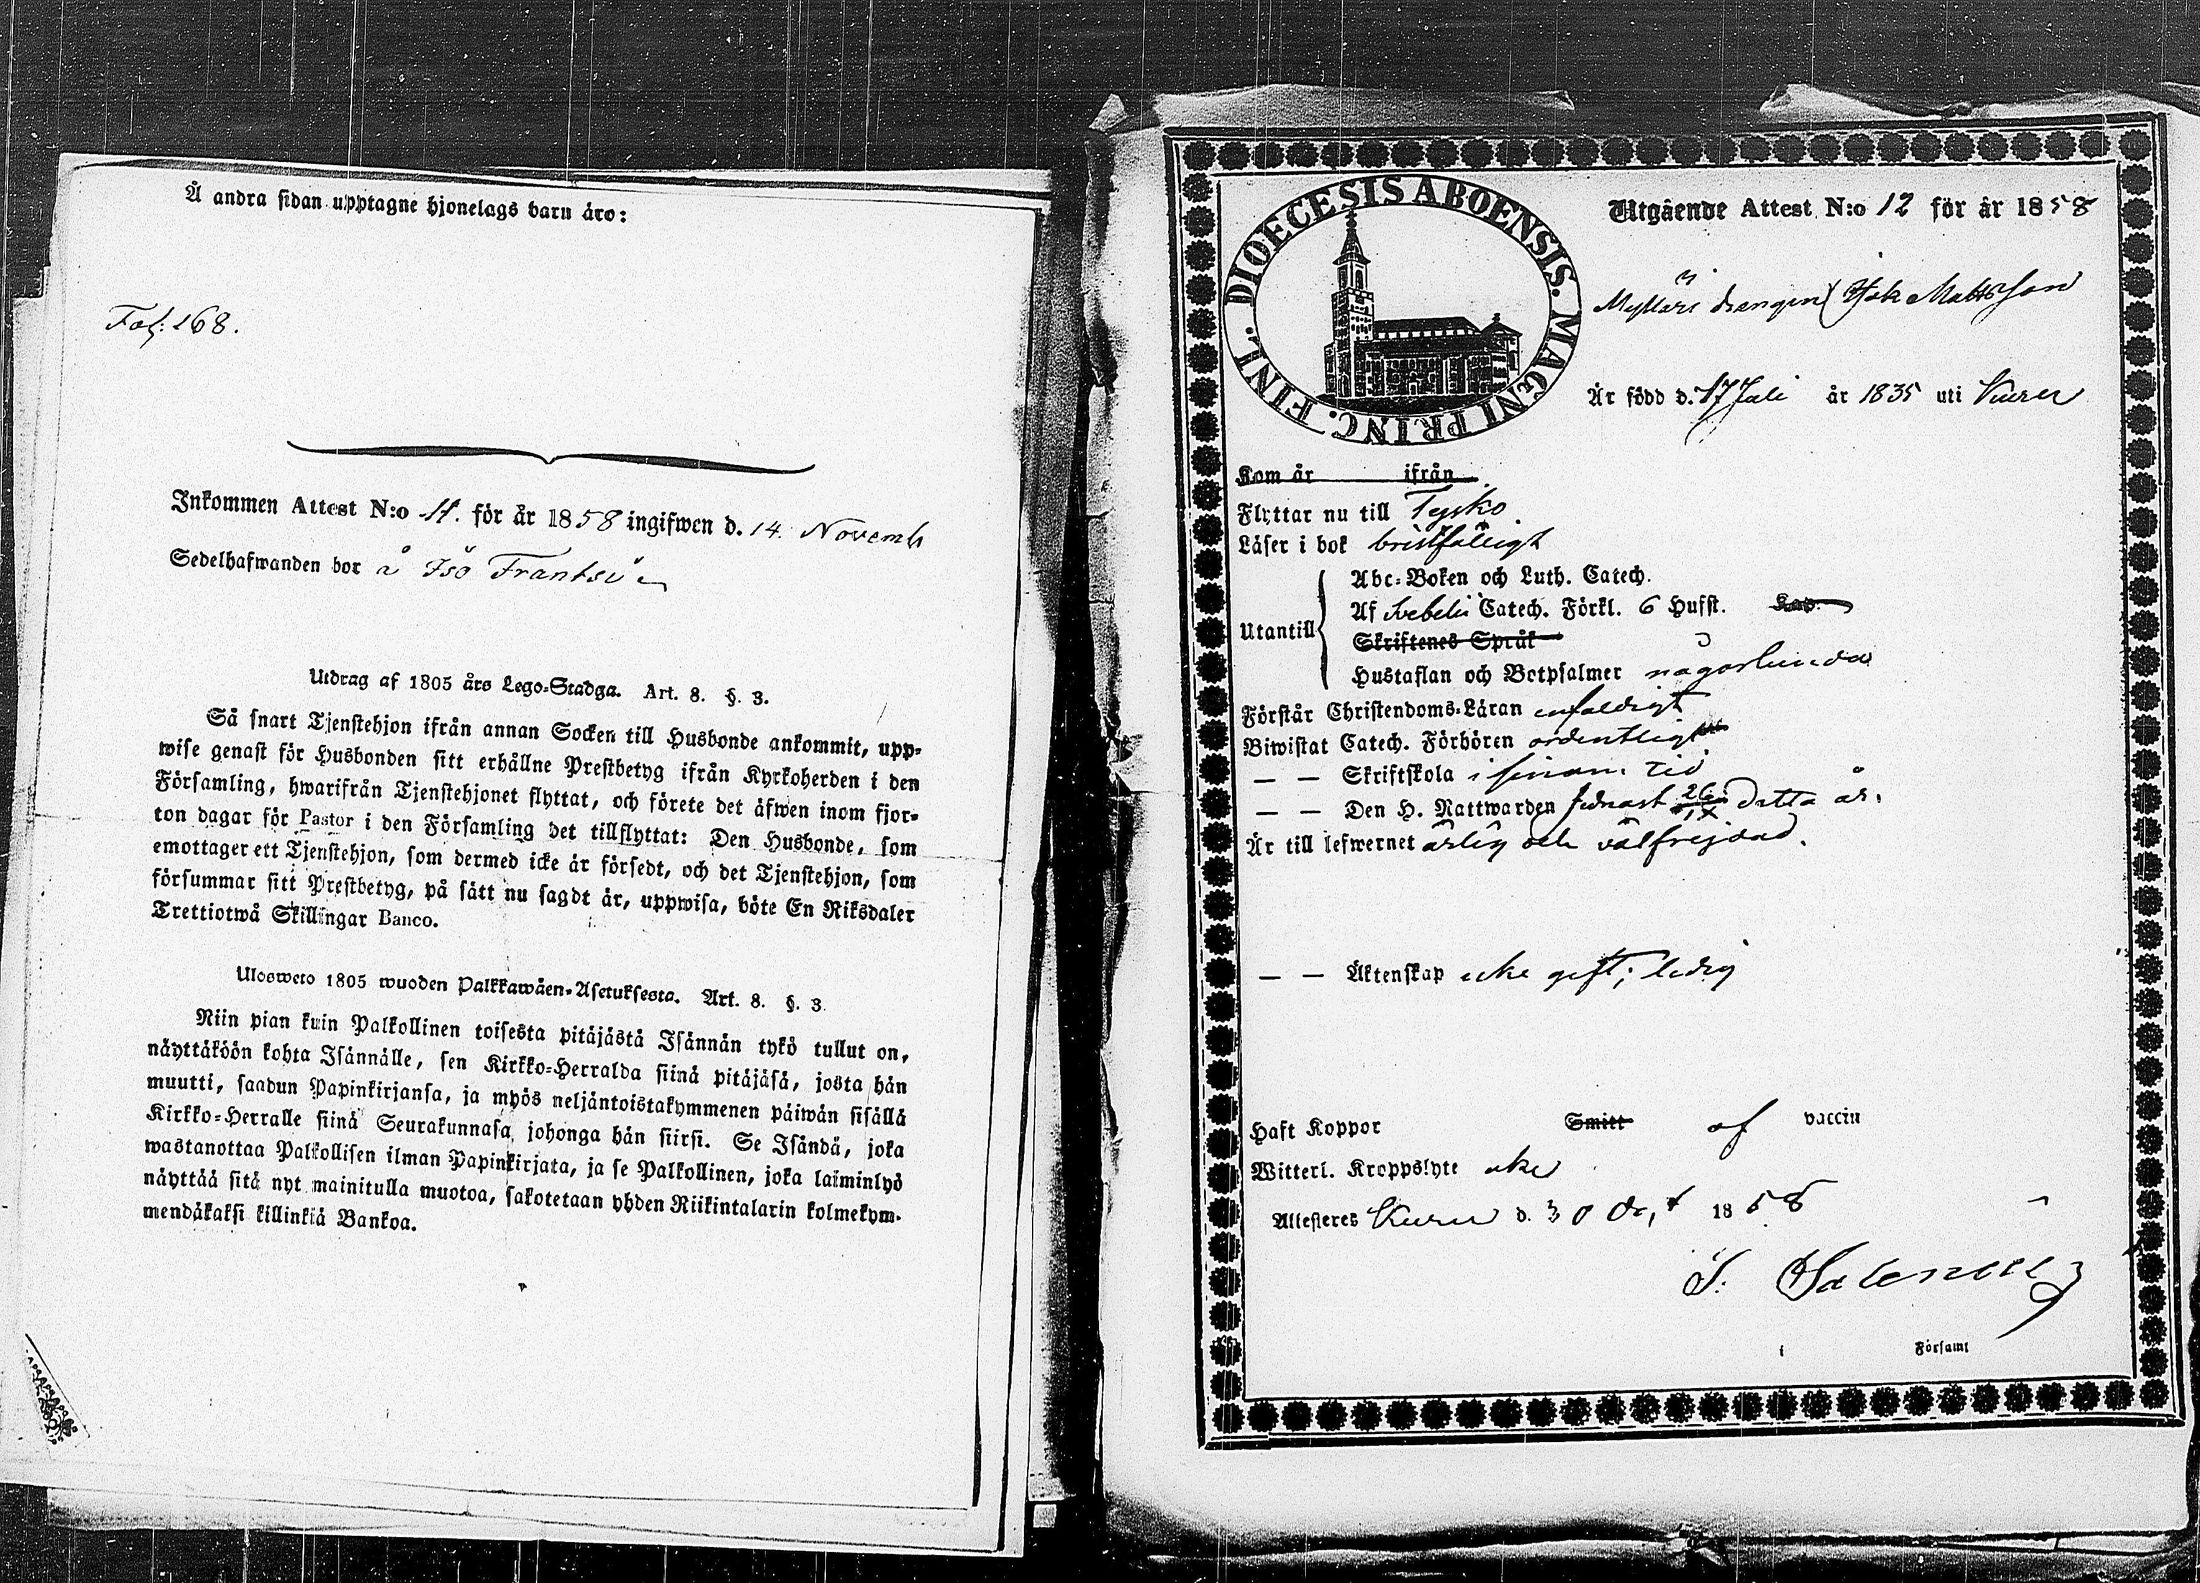 Å andra sidan upptagne hjonelags barn äro:
Fol: 268.
Inkommen Attest N:o 11. för år 1858 ingifwen d. 14 Novemb
Sedelhafwanden bor å Isö Frantsi
Utdrag af 1805 års Lego-Stadga. Art. 8. §. 3.
Så snart Tjenstehjon ifrån annan Socken till Husbonde ankommit, upp-
wise genast för Husbonden sitt erhållne Prestbetyg ifrån Kyrkoherden i den
Församling, hwarifrån Tjenstehjonet flyttat, och förete det äfwen inom fjor-
ton dagar för Pastor i den Församling det tillflyttat: Den Husbonde, som
emottager ett Tjenstehjon, som dermed icke är försedt, och det Tjenstehjon, som
försummar sitt Prestbetyg, på sätt nu sagdt är, uppwisa, böte En Riksdaler
Trettiotwå Skillingar Banco.
Ulosweto 1805 wuoden Palkkawäen-Asetuksesta. Art. 8. §. 3
Niin pian kuin Palkollinen toisesta pitäjästä Isännän tykö tullut on,
näyttäköön kohta Isännälle, sen Kirkko-Herralda siinä pitäjäsä, josta hän
muutti, saadun Papinkirjansa, ja myös neljäntoistakymmenen päiwän sisällä
Kirkko-Herralle siinä Seurakunnasa, johonga hän siirsi. Se Isändä, joka
wastanottaa Palkollisen ilman Papinkirjata, ja se Palkollinen, joka laiminlyö
näyttää sitä nyt mainitulla muotoa, sakotetaan yhden Riikintalarin kolmekym-
mendäkaksi killinkiä Bankoa.
DIOECESIS ABOENSIS. MAGNI PRINC. FINL.
Utgående Attest N:o 12 för år 1858
drängen Isak Mattsson
Är född d. 17 Juli år 1835 uti Kuru
Kom år ifrån
Flyttar nu till Teisko
Läser i bok bristfälligt
Abc-Boken och Luth. Catech.
Utantill Af Svebelii Catech. Förkl. 6 Hufst. Kap.
Skriftenes Språk
Hustaflan och Botpsalmer någorlunda
Förstår Christendoms-Läran enfaldigt
Biwistat Catech. Förhören ordentligt
— — Skriftskola i sinom tid
— — Den H. Nattwarden sednast 26/IX detta år.
Är till lefwernet ärlig och välfrejdad.
— — Äktenskap icke gift; ledig
Haft Koppor Smitt af vaccin
Witterl. Kroppslyte icke
Attesteres Kuru d. 30 Oct 1858
i Församl